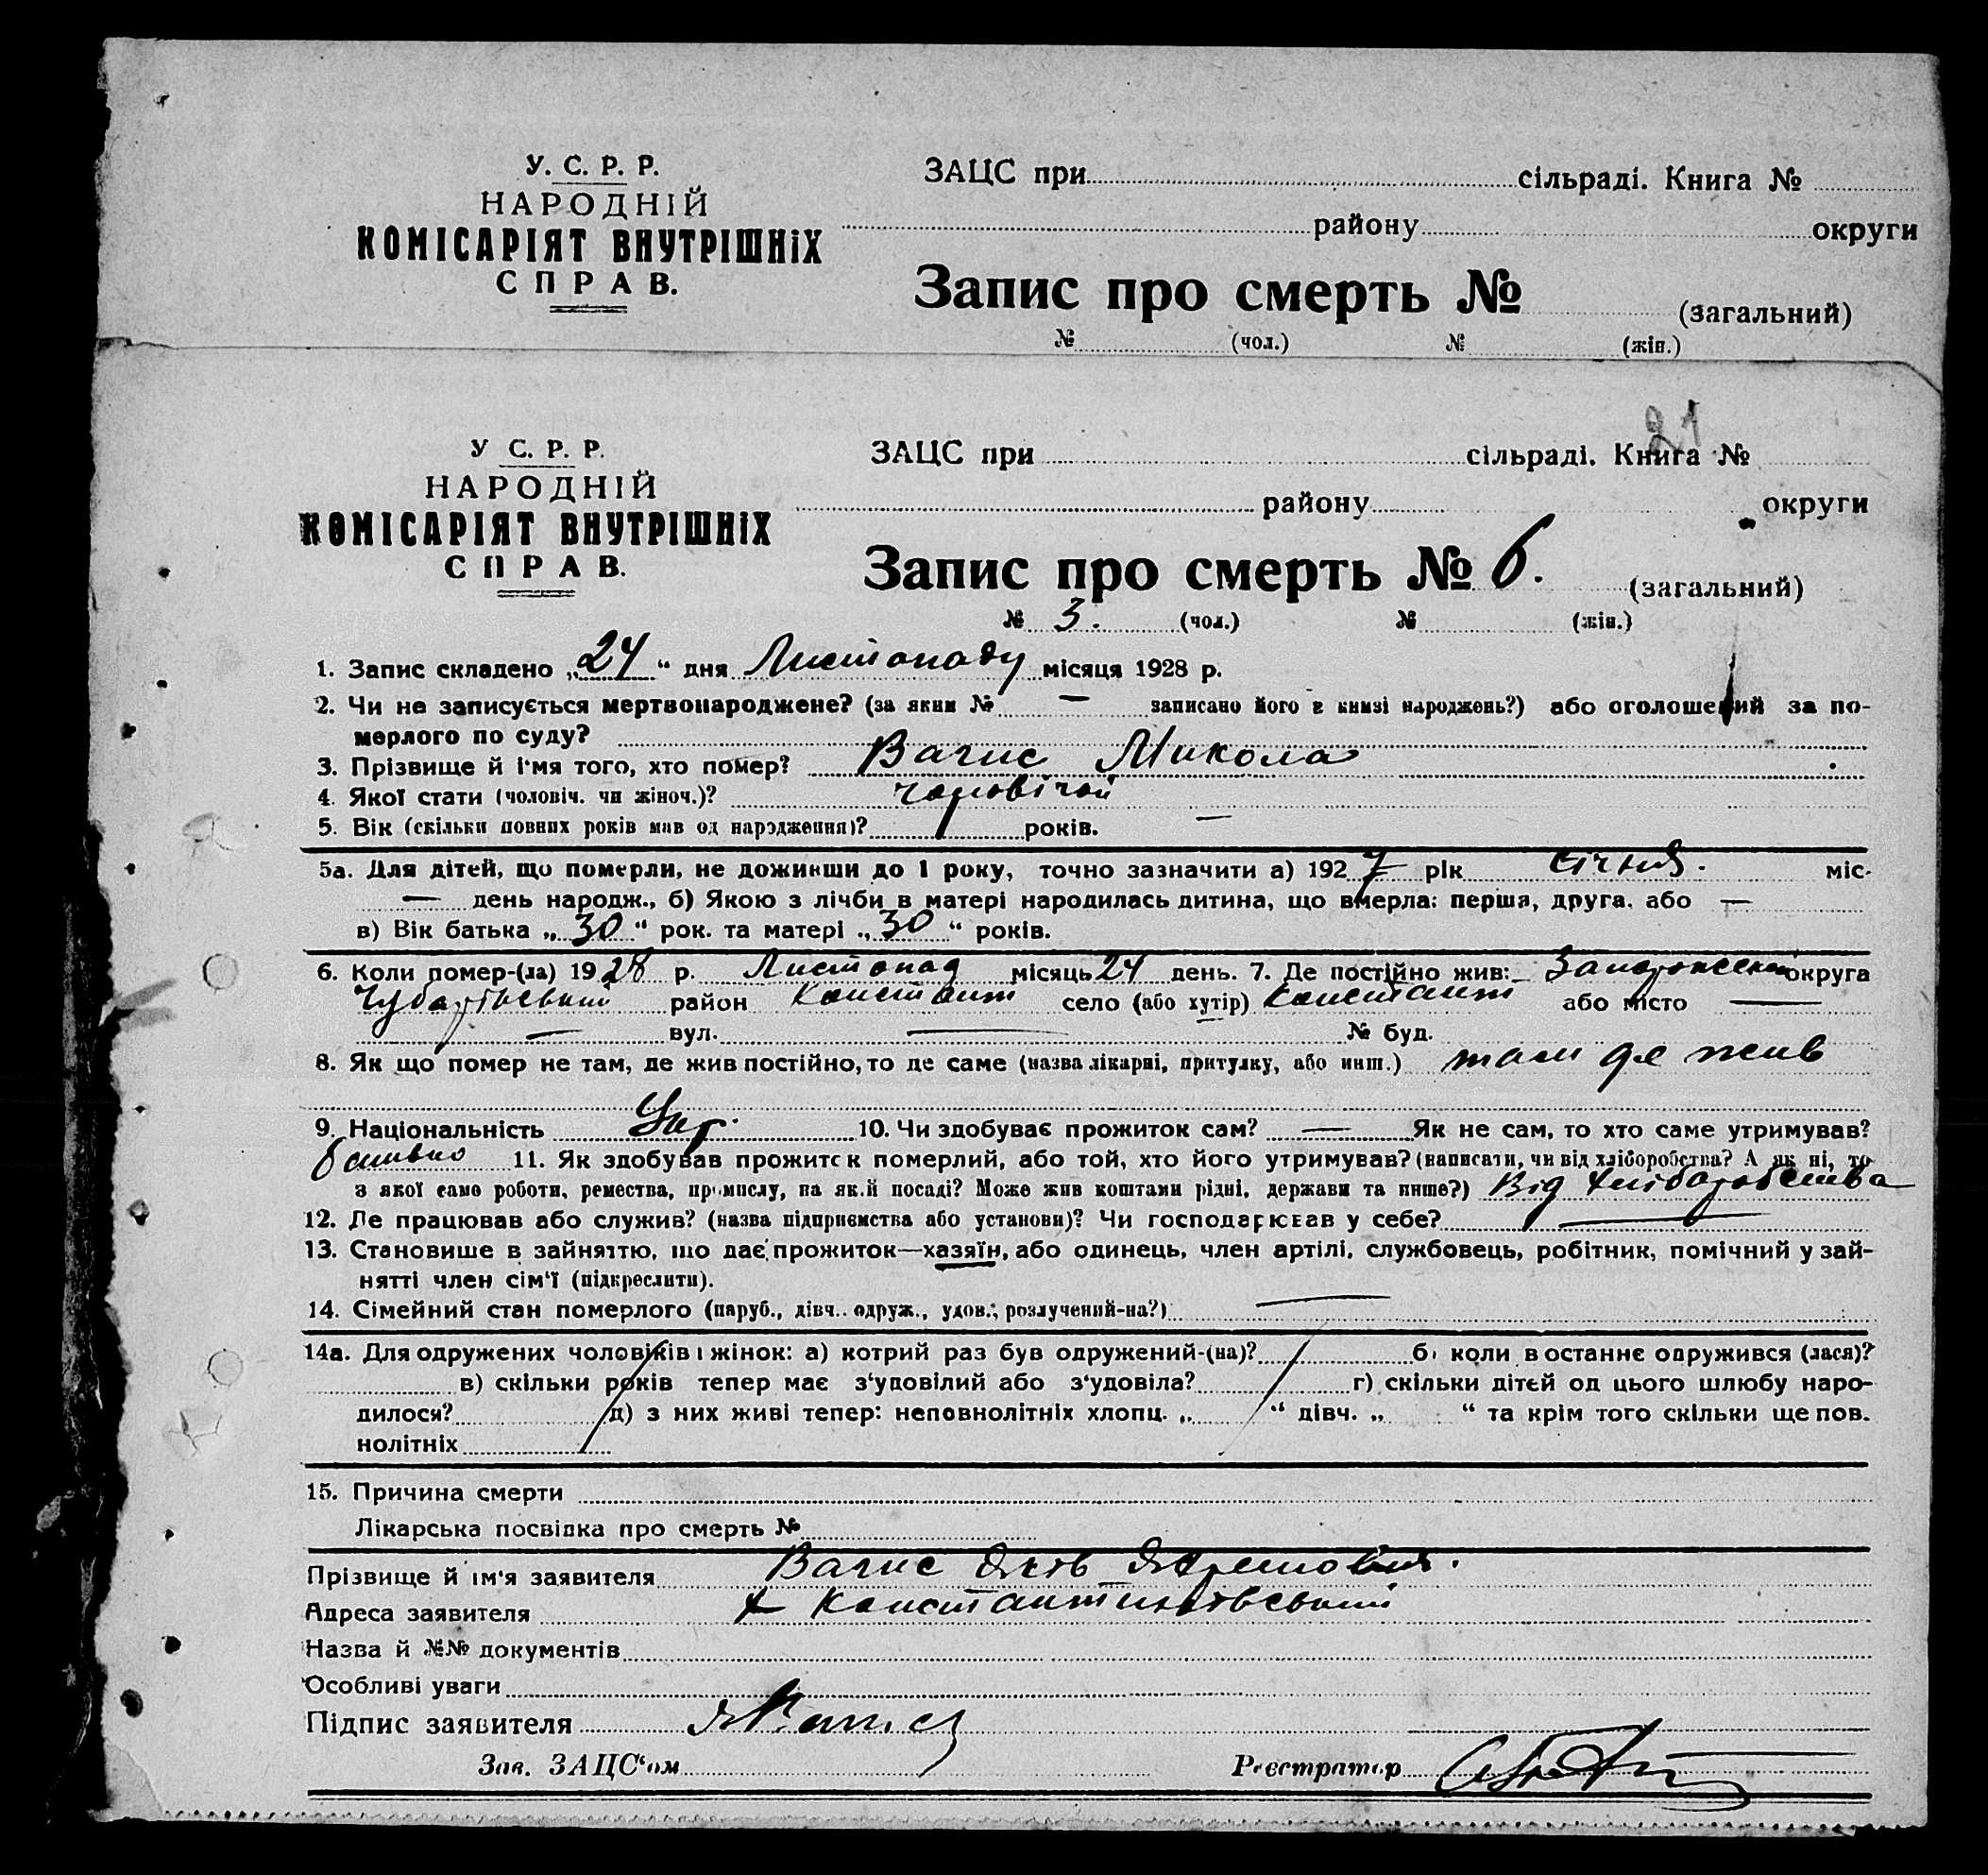 У. С. Р. Р.
НАРОДНІЙ
КОМІСАРІЯТ ВНУТРІШНіХ
СПРАВ.
ЗАЦС при сільраді. Книга №
району округи
Запис про смерть № (загальний)
№ (чол.) № (жін.)
21
У С. Р. Р.
НАРОДНІЙ
КОМІСАРІЯТ ВНУТРІШНіХ
СПРАВ.
ЗАЦС при сільраді. Книга №
району округи
Запис про смерть № 6. (загальний)
№ 3. (чол.) № (жін.)
1. Запис складено „24“ дня Листопаду місяця 1928 р.
2. Чи не записується мертвонароджене? (за яким № — записано його в книзі народжень?) або оголошений за по-
мерлого по суду?
3. Прізвище й і'мя того, хто помер? Вагис Микола
4. Якої стати (чоловіч. чи жіноч.)? чоловічой
5. Вік (скільки повних років мав од народження)? 1 років. —
5а. Для дітей, що померли, не доживши до 1 року, точно зазначити а) 1927 рік січня. міс.
— день народж., б) Якою з лічби в матері народилась дитина, що вмерла: перша, друга, або —
в) Вік батька „30“ рок. та матері „30“ років.
6. Коли помер-(ла) 1928 р. Листопад місяць 24 день. 7. Де постійно жив: округа
район Констант село (або хутір) Констант або місто —
— вул. — № буд.
8. Як що помер не там, де жив постійно, то де саме (назва лікарні, притулку, або инш.) там де жив
9. Національність Укр. 10. Чи здобуває прожиток сам? — Як не сам, то хто саме утримував?
11. Як здобував прожиток померлий, або той, хто його утримував? (написати, чи від хліборобства? А як ні, то
з якої саме роботи, ремества, промислу, на якій посаді? Може жив коштами рідні, держави та инше?) Від хліборобства
12. Де працював або служив? (назва підприємства або установи)? Чи господарював у себе? —
13. Становище в зайняттю, що дає прожиток—хазяїн, або одинець, член артілі, службовець, робітник, помічний у зай-
нятті член сім'ї (підкреслити).
14. Сімейний стан померлого (паруб., дівч., одруж., удов., розлучений-на?) —
14а. Для одружених чоловіків і жінок: а) котрий раз був одружений-(на)? б) коли востаннє одружився (лася)?
в) скільки років тепер має з'удовілий або з'удовіла? г) скільки дітей од цього шлюбу наро-
дилося? д) з них живі тепер: неповнолітніх хлопц. „ “ дівч. „ “ та крім того скільки ще пов.
нолітніх
15. Причина смерти
Лікарська посвідка про смерть №
Прізвище й ім'я заявителя Вагис Яків
Адреса заявителя х Константиновський
Назва й №№ документів
Особливі уваги
Підпис заявителя
Зав. ЗАЦС'ом Реєстратор